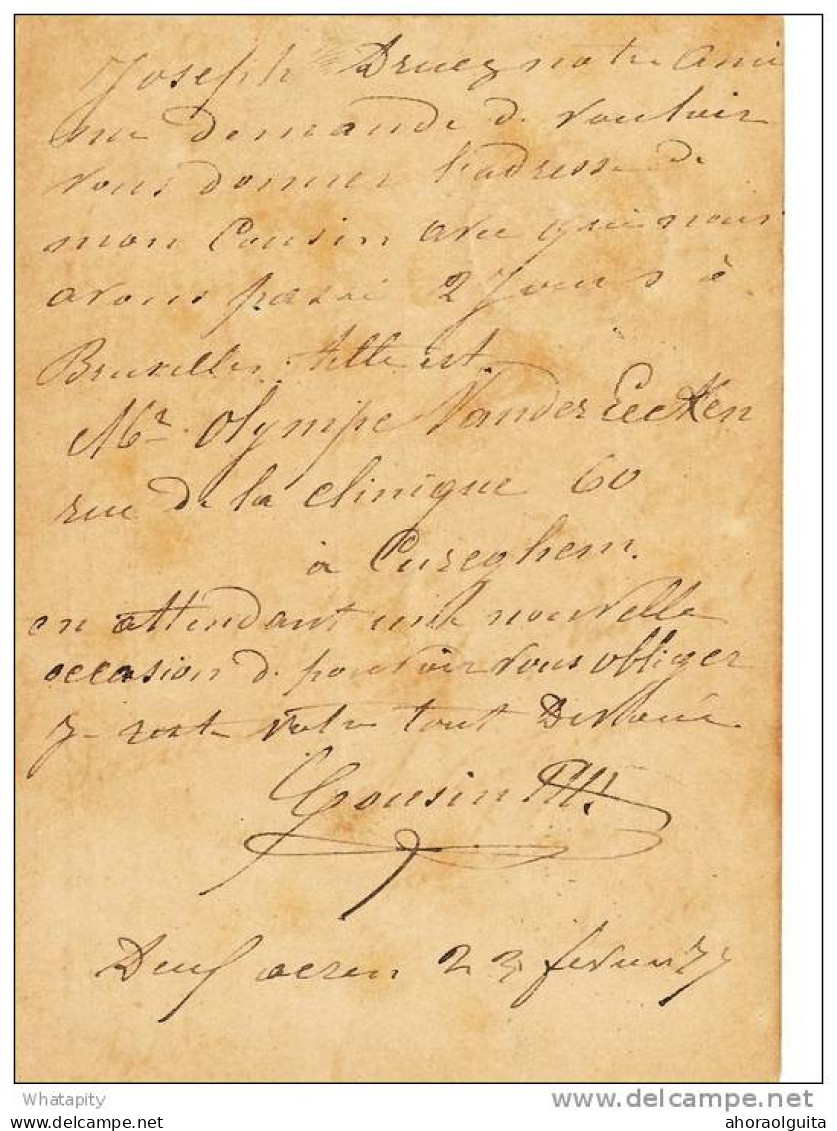 Joseph Druez notre Ami
me demande de vouloir
vous donner l'adresse de
mon Cousin avec qui nous
avons passé 2 Jours à
Bruxelles. telle est
Mr. Olympe Vander Eecken
rue de la clinique 60
à Cureghem.
en attendant une nouvelle
occasion de pouvoir vous obliger
Je reste votre tout Dévoué
Cousin
Deux acren 23 fevrier 77
Whatapity
delcampe.net
ahoraolguita